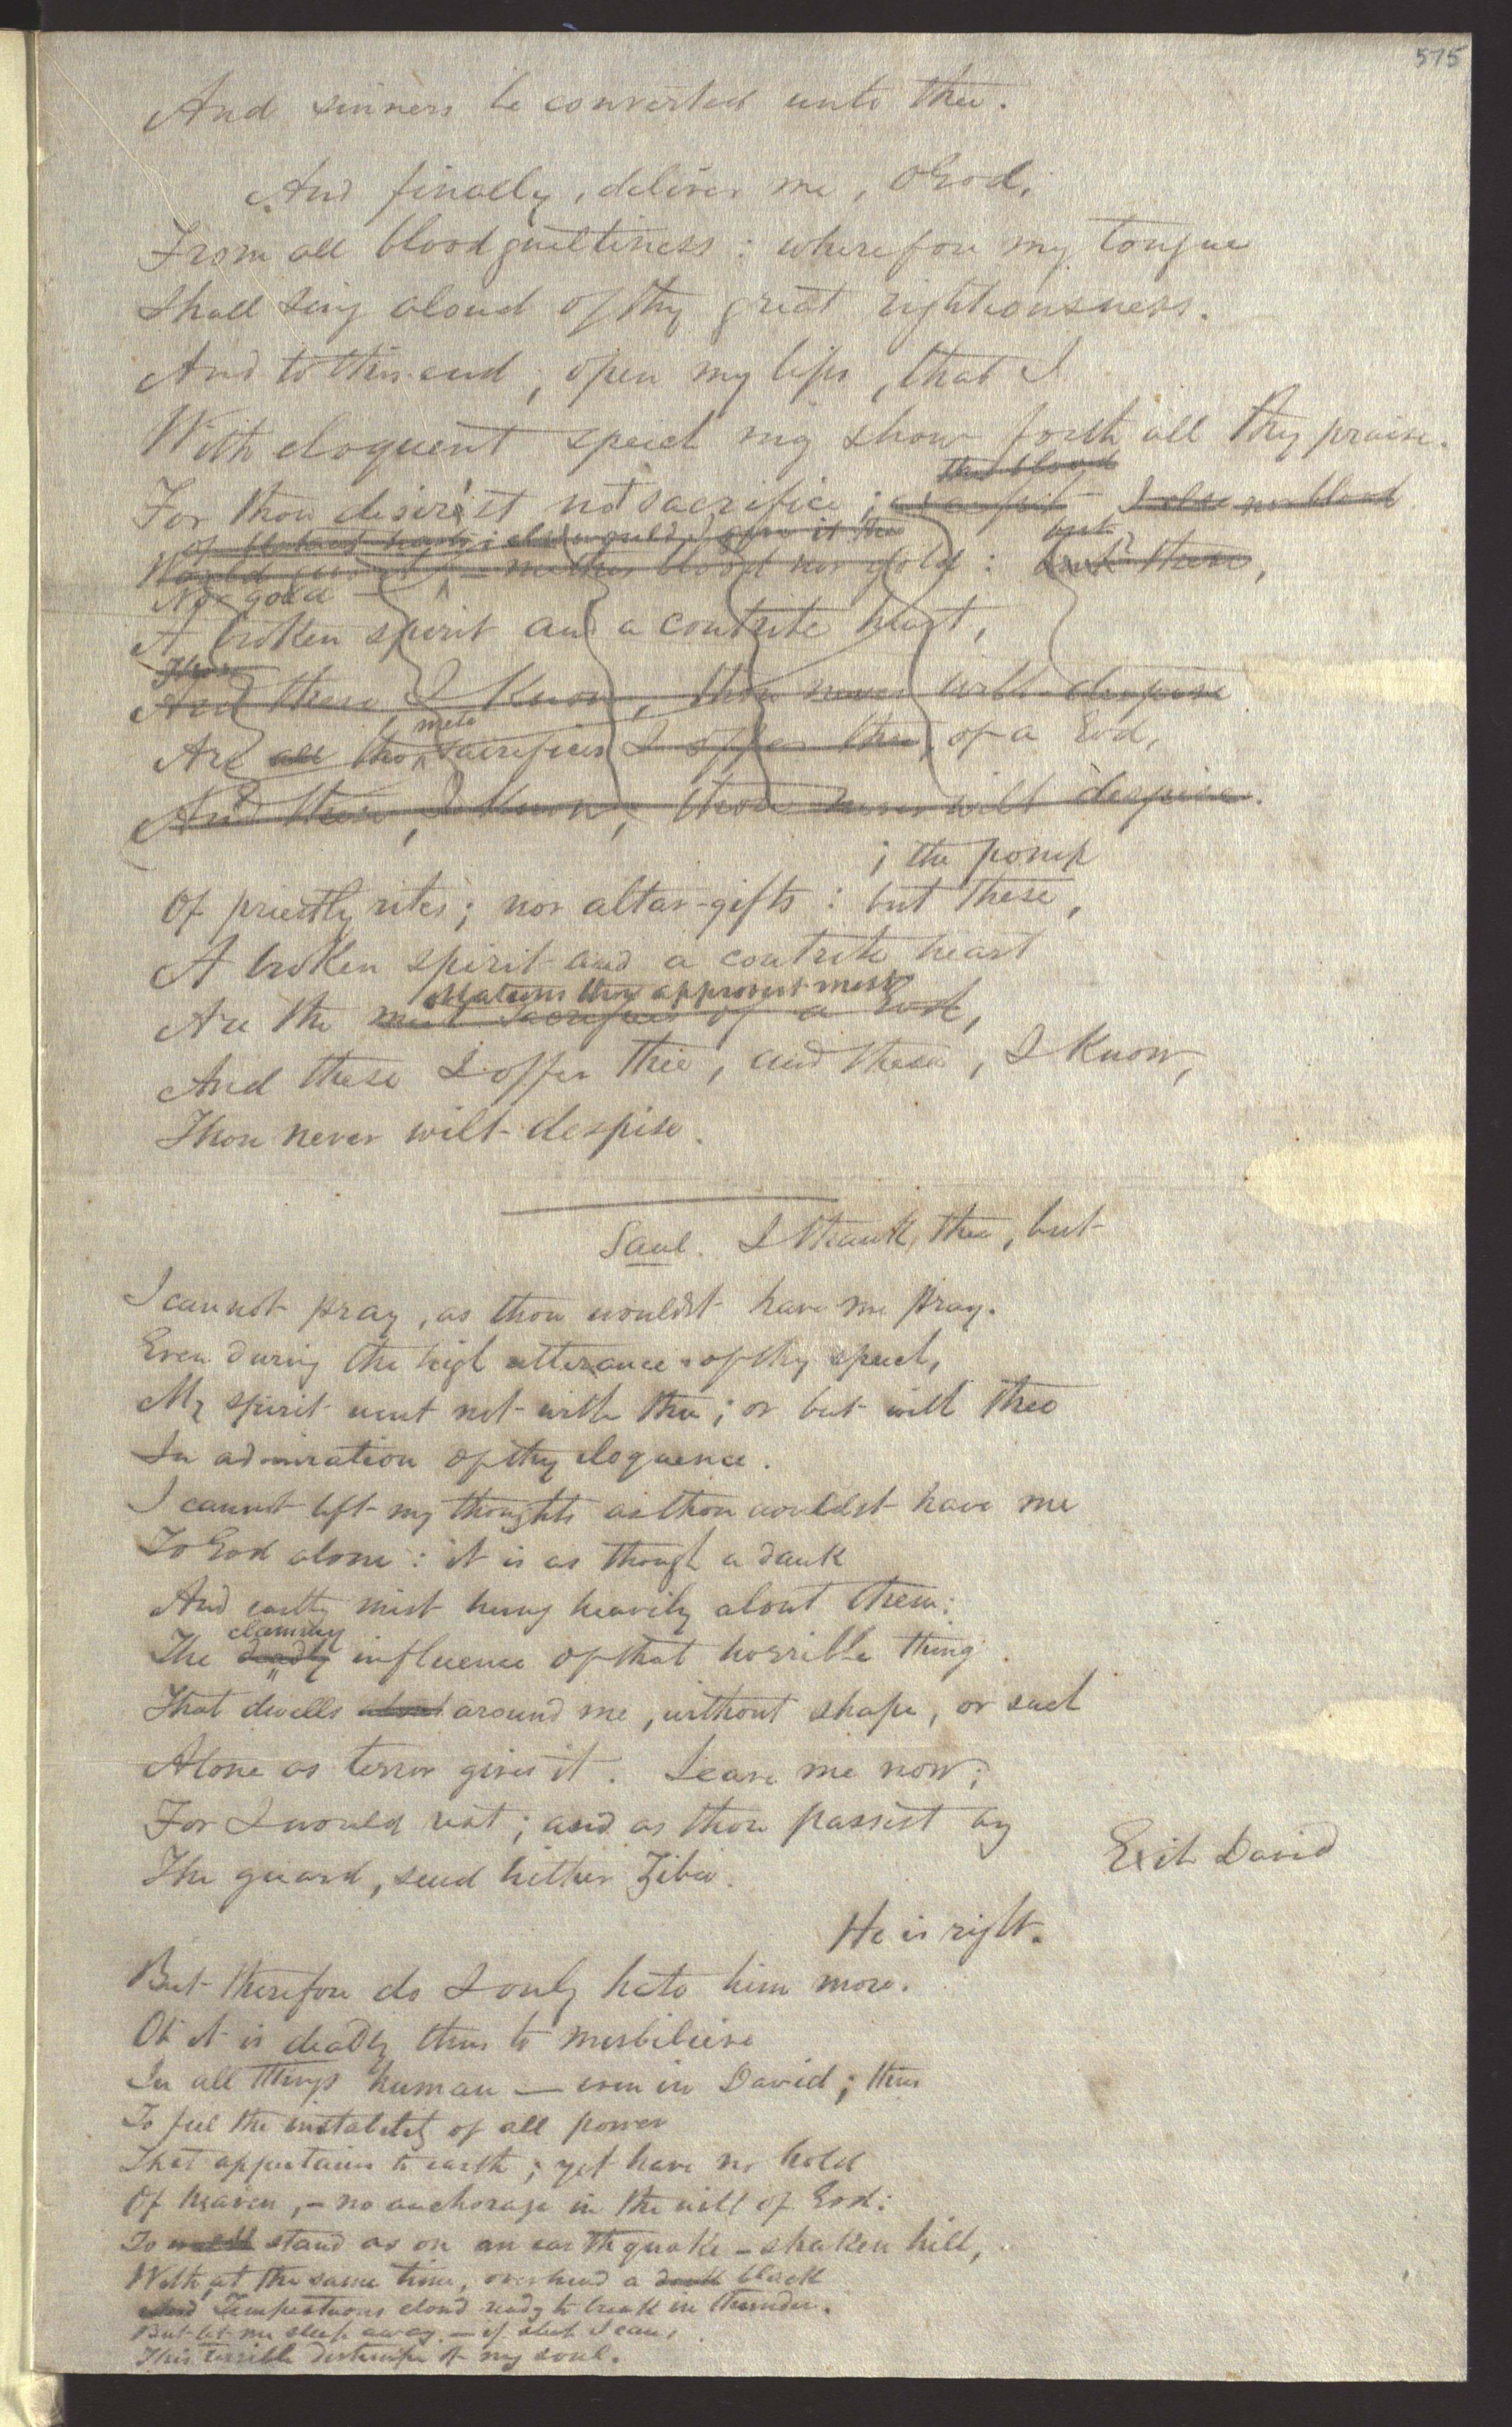 575
And sinners be converted unto thee.
And finally, deliver me, O God,
From all bloodguiltiness: wherefore my tongue
Shall sing aloud of thy great righteousness.
And to this end, open my lips, that I
With eloquent speech may show forth all thy praise.
the blood
For thou desir'st not sacrifice; I else no blood
of else would I give it thee
Would neither blood nor gold: but these,
Nor gold
A broken spirit and a contrite heart,
Thou
And these, I know, thou never wilt despise
meet
Are all the sacrifices I offer thee, of a God,
And these, I know, thou never wilt despise.
; the pomp
Of priestly rites; nor altar-gifts: but these,
A broken spirit and a contrite heart
oblations thou approvest most
Are the meet sacrifices of a God,
And these I offer thee, and these, I know,
Thou never wilt despise.
Saul. I thank thee, but
I cannot pray, as thou wouldst have me pray.
Even during the high utterance of thy speech,
My spirit went not with thee; or but with thee
In admiration of thy eloquence.
I cannot lift my thoughts as thou wouldst have me
To God alone: it is as though a dank
And earthy mist hung heavily about them:
clammy
The deadly influence of that horrible thing
That dwells about around me, without shape, or such
Alone as terror gives it. Leave me now;
For I would rest; and as thou passest by
The guard, send hither Ziba.
Exit David
He is right.
But therefore do I only hate him more.
Oh it is deadly thus to misbelieve
In all things human — even in David; thus
To feel the instability of all power
That appertains to earth; yet have no hold
Of heaven, – no anchorage in the will of God:
To stand as on an earthquake-shaken hill,
With, at the same time, overhead a dark black
And Tempestuous cloud ready to break in thunder.
But let me sleep away, — if sleep I can,
This terrible distemper of my soul.